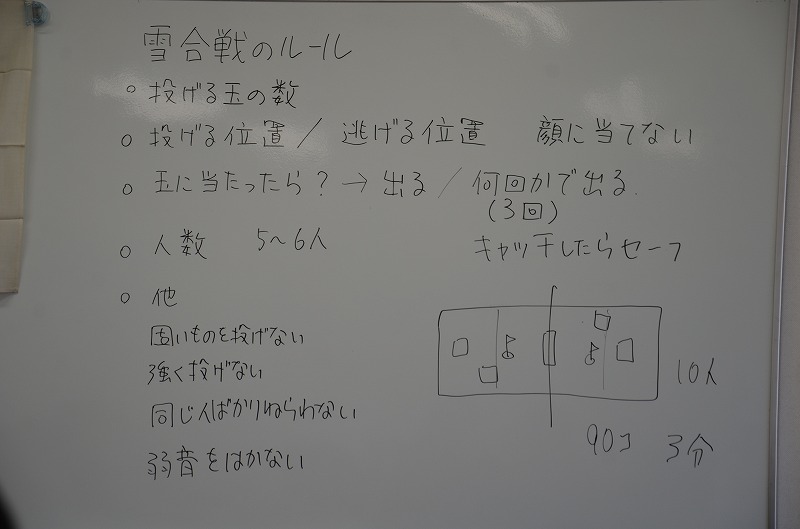 雪合戦のルール
○ 投げる玉の数
○ 投げる位置 / 逃げる位置 顔に当てない
○ 玉に当たったら? → 出る / 何回かで出る.
(3回)
○ 人数 5〜6人 キャッチしたらセーフ
○ 他
固いものを投げない
強く投げない
同じ人ばかりねらわない
弱音をはかない
10人
90コ 3分